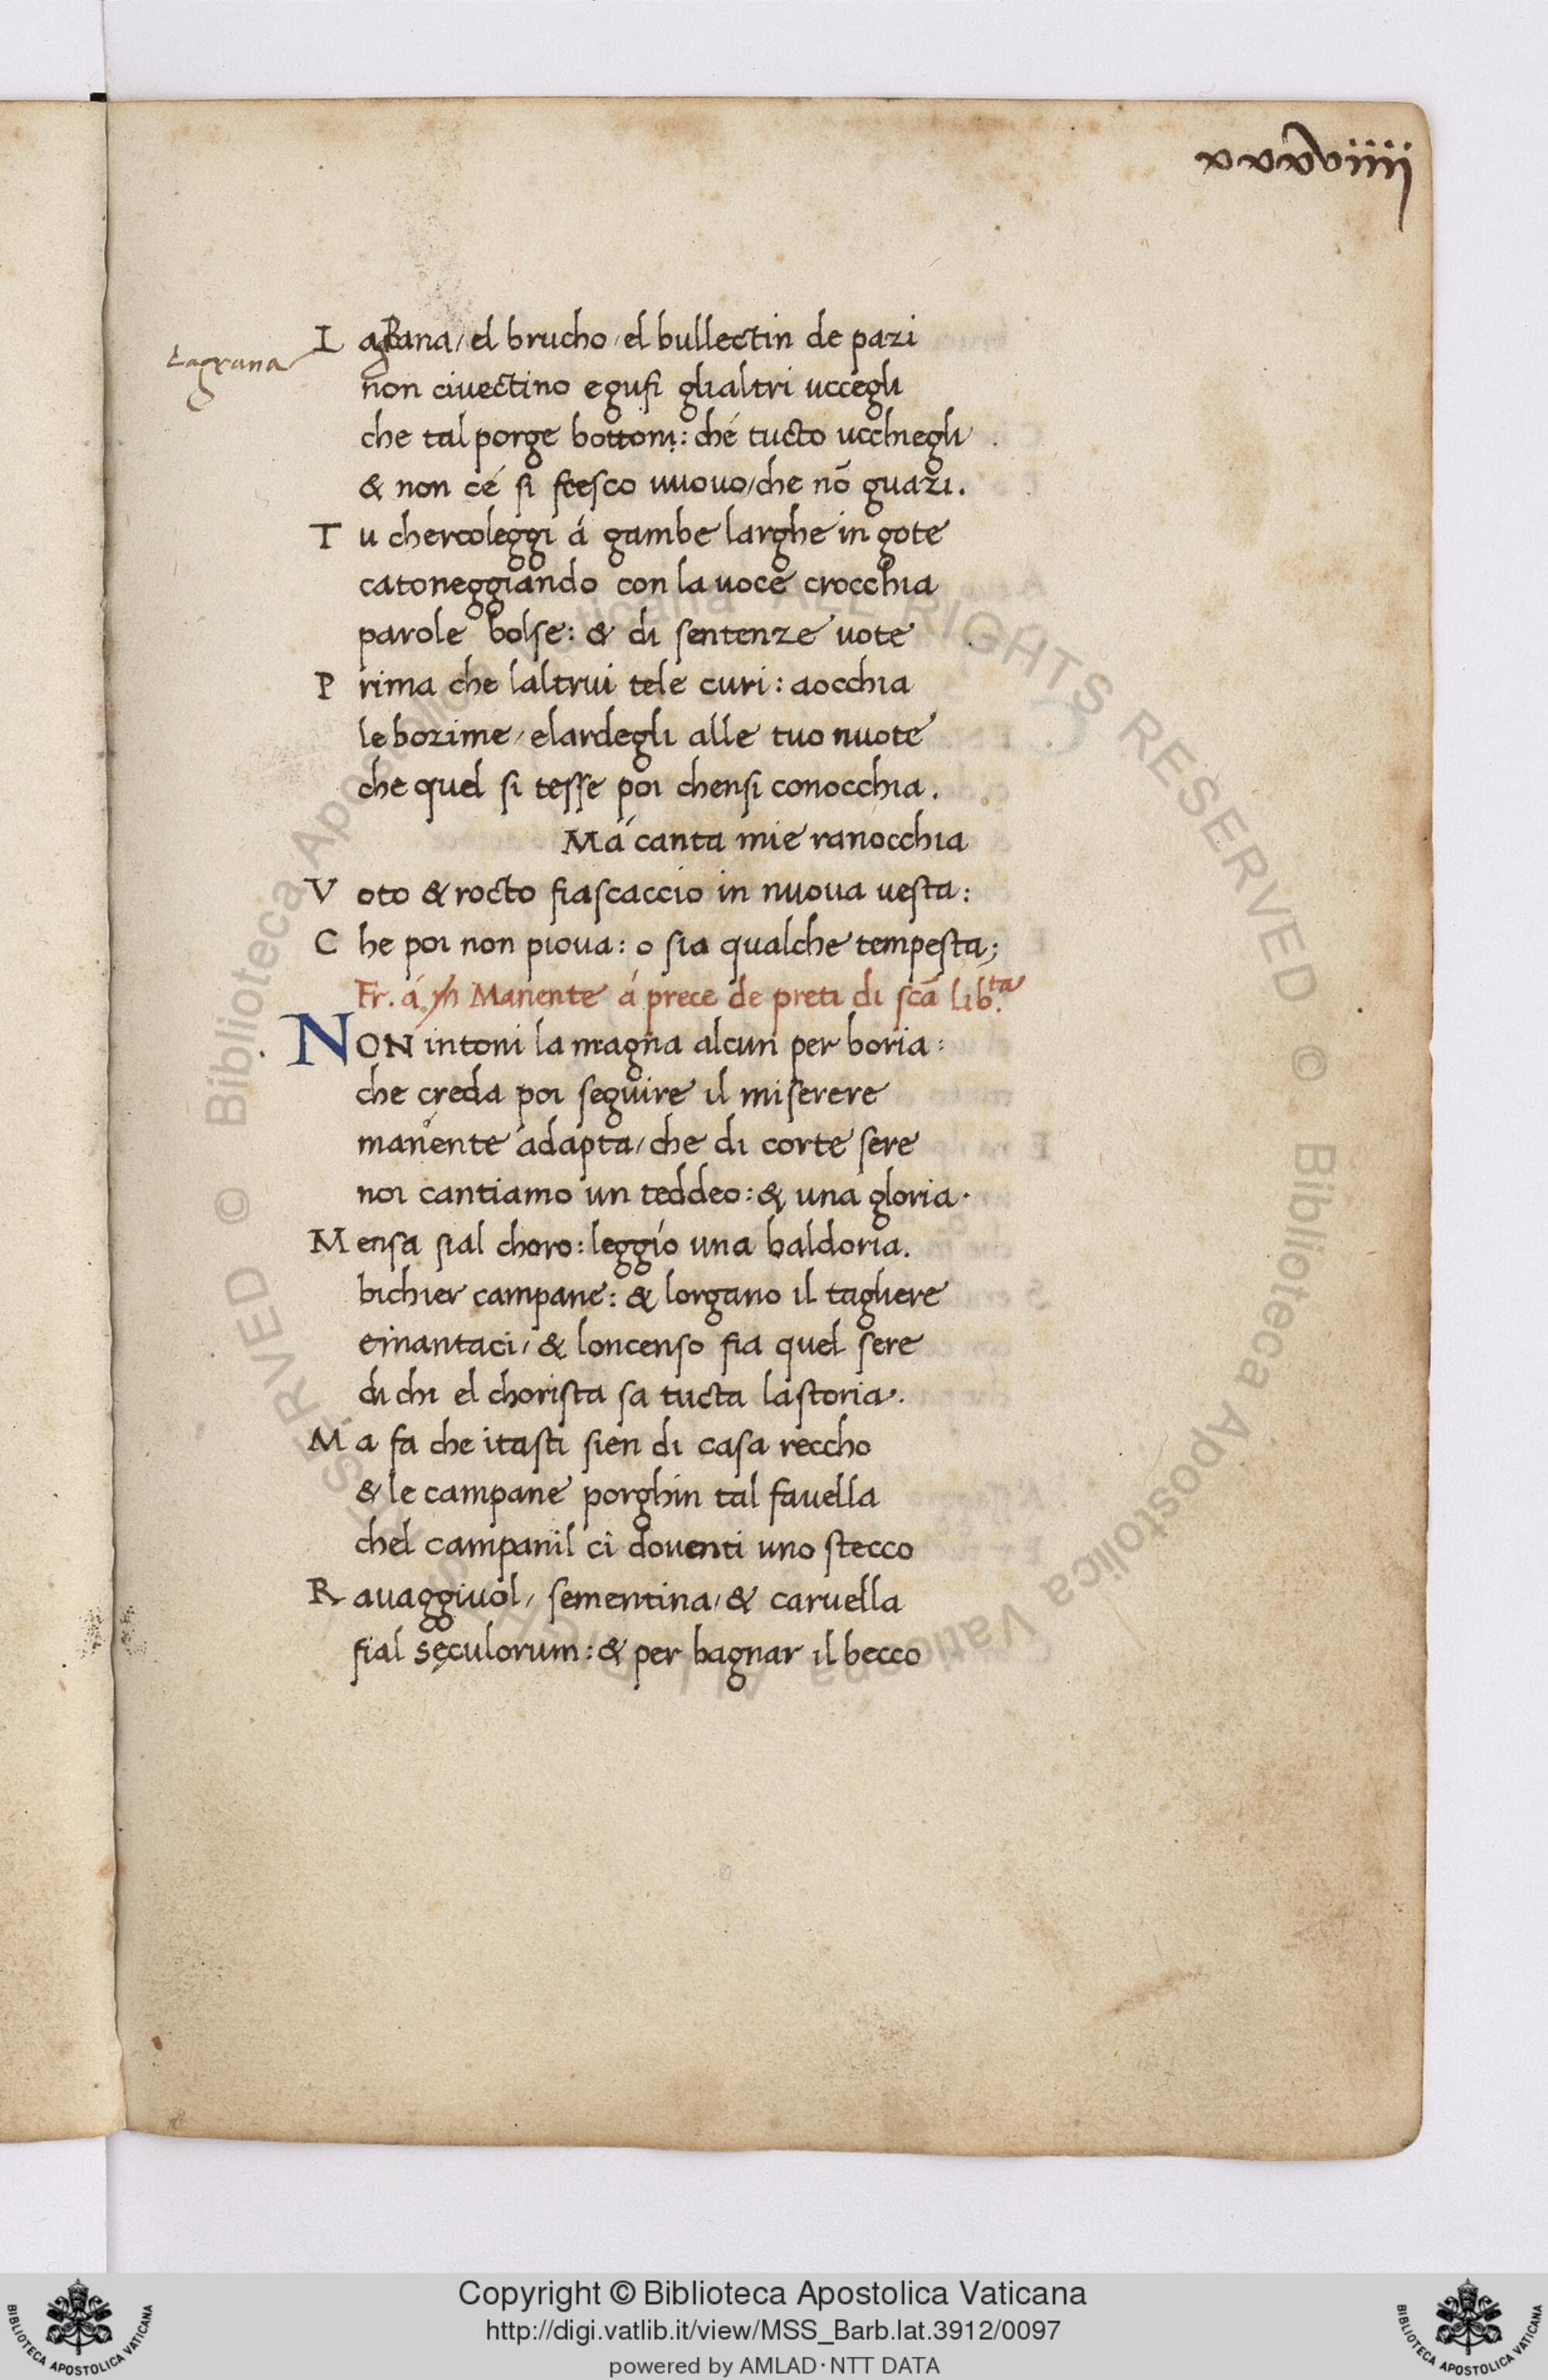 xxxviiii
Lagrana
L agRana / el brucho / el bullectin de pazi
non ciuectino e gufi glialtri uccegli
che tal porge bottoni : ché tucto ucchiegli .
& non cé si fresco nuouo / che nõ guazi .
T u chercoleggi á gambe larghe in gote
catoneggiando con la uoce crocchia
parole bolse : & di sentenze uote
P rima che laltrui tele curi : aocchia
le bozime / elardegli alle tuo nuote
che quel si tesse poi chensi conocchia .
Má canta mie ranocchia
V oto & rocto fiascaccio in nuoua uesta :
C he poi non pioua : o sia qualche tempesta ;
Fr. á Manente á prece de preti di scã lib.ta
NON intoni la magna alcun per boria :
che creda poi seguire il miserere
manente adapta / che di corte sere
noi cantiamo un teddeo : & una gloria .
M ensa sial choro : leggío una baldoria .
bichier campane : & lorgano il tagliere
emantaci / & loncenso fia quel sere
di chi el chorista sa tucta lastoria .
M a fa che itasti sien di casa reccho
& le campane porghin tal fauella
chel campanil ci douenti uno stecco
R auaggiuol / sementina / & caruella
fial sęculorum : & per bagnar il becco
Copyright © Biblioteca Apostolica Vaticana
http://digi.vatlib.it/view/MSS_Barb.lat.3912/0097
powered by AMLAD·NTT DATA
BIBLIOTECA APOSTOLICA VATICANA
BIBLIOTECA APOSTOLICA VATICANA
© Biblioteca Apostolica Vaticana ALL RIGHTS RESERVED © Biblioteca Apostolica Vaticana ALL RIGHTS RESERVED